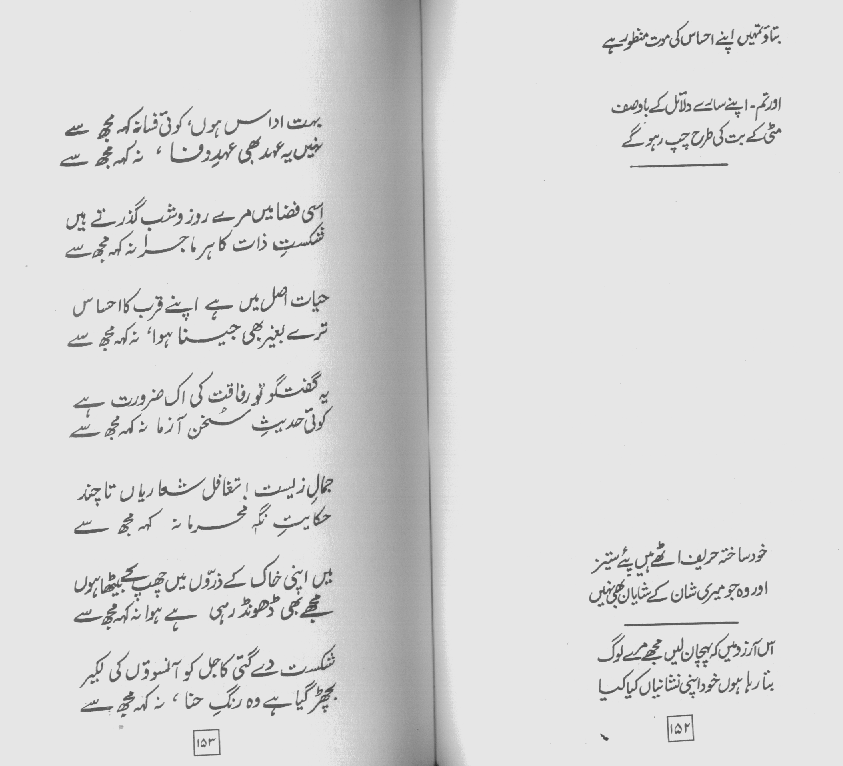 بتاؤ تمہیں اپنے احساس کی موت منظور ہے
اور تم - اپنے سارے دلائل کے باوصف
مٹی کے بت کی طرح چپ رہو گے
خود ساختہ حریف اٹھے ہیں پئے ستیز
اور وہ جو میری شان کے شایان بھی نہیں
اس آرزو میں کہ پہچان لیں مجھے مرے لوگ
بنا رہا ہوں خود اپنی نشانیاں کیا کیا
۱۵۲
بہت اداس ہوں، کوئی فسانہ کہہ مجھ سے
نہیں یہ عہد بھی عہدِ وفا، نہ کہہ مجھ سے
اسی فضا میں مرے روز و شب گذرتے ہیں
شکستِ ذات کا ہر ماجرا نہ کہہ مجھ سے
حیات اصل میں ہے اپنے قرب کا احساس
ترے بغیر بھی جینا ہوا، نہ کہہ مجھ سے
یہ گفتگو تو رفاقت کی اک ضرورت ہے
کوئی حدیثِ سخن آزما نہ کہہ مجھ سے
جمالِ زیست! تغافل شعاریاں تا چند
حکایتِ نگہِ محرمانہ کہہ مجھ سے
میں اپنی خاک کے ذرّوں میں چھپ کے بیٹھا ہوں
مجھے بھی ڈھونڈ رہی ہے ہوا نہ کہہ مجھ سے
شکست دے گئی کاجل کو آنسوؤں کی لکیر
بچھڑ گیا ہے وہ رنگِ حنا، نہ کہہ مجھ سے
۱۵۳